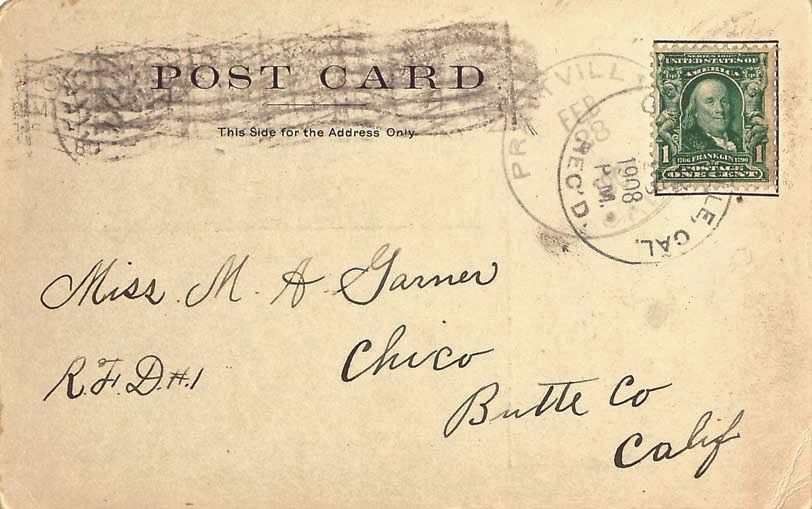 POST CARD
This Side for the Address Only
FEB
8
REC'D.
1908
P.M.
LE, CAL.
SERIES 1902
UNITED STATES OF
AMERICA
1 1706 FRANKLIN 1790 1
POSTAGE
ONE CENT
Miss. M. A Garner
R.F.D.#.1
Chico
Butte Co
Calif